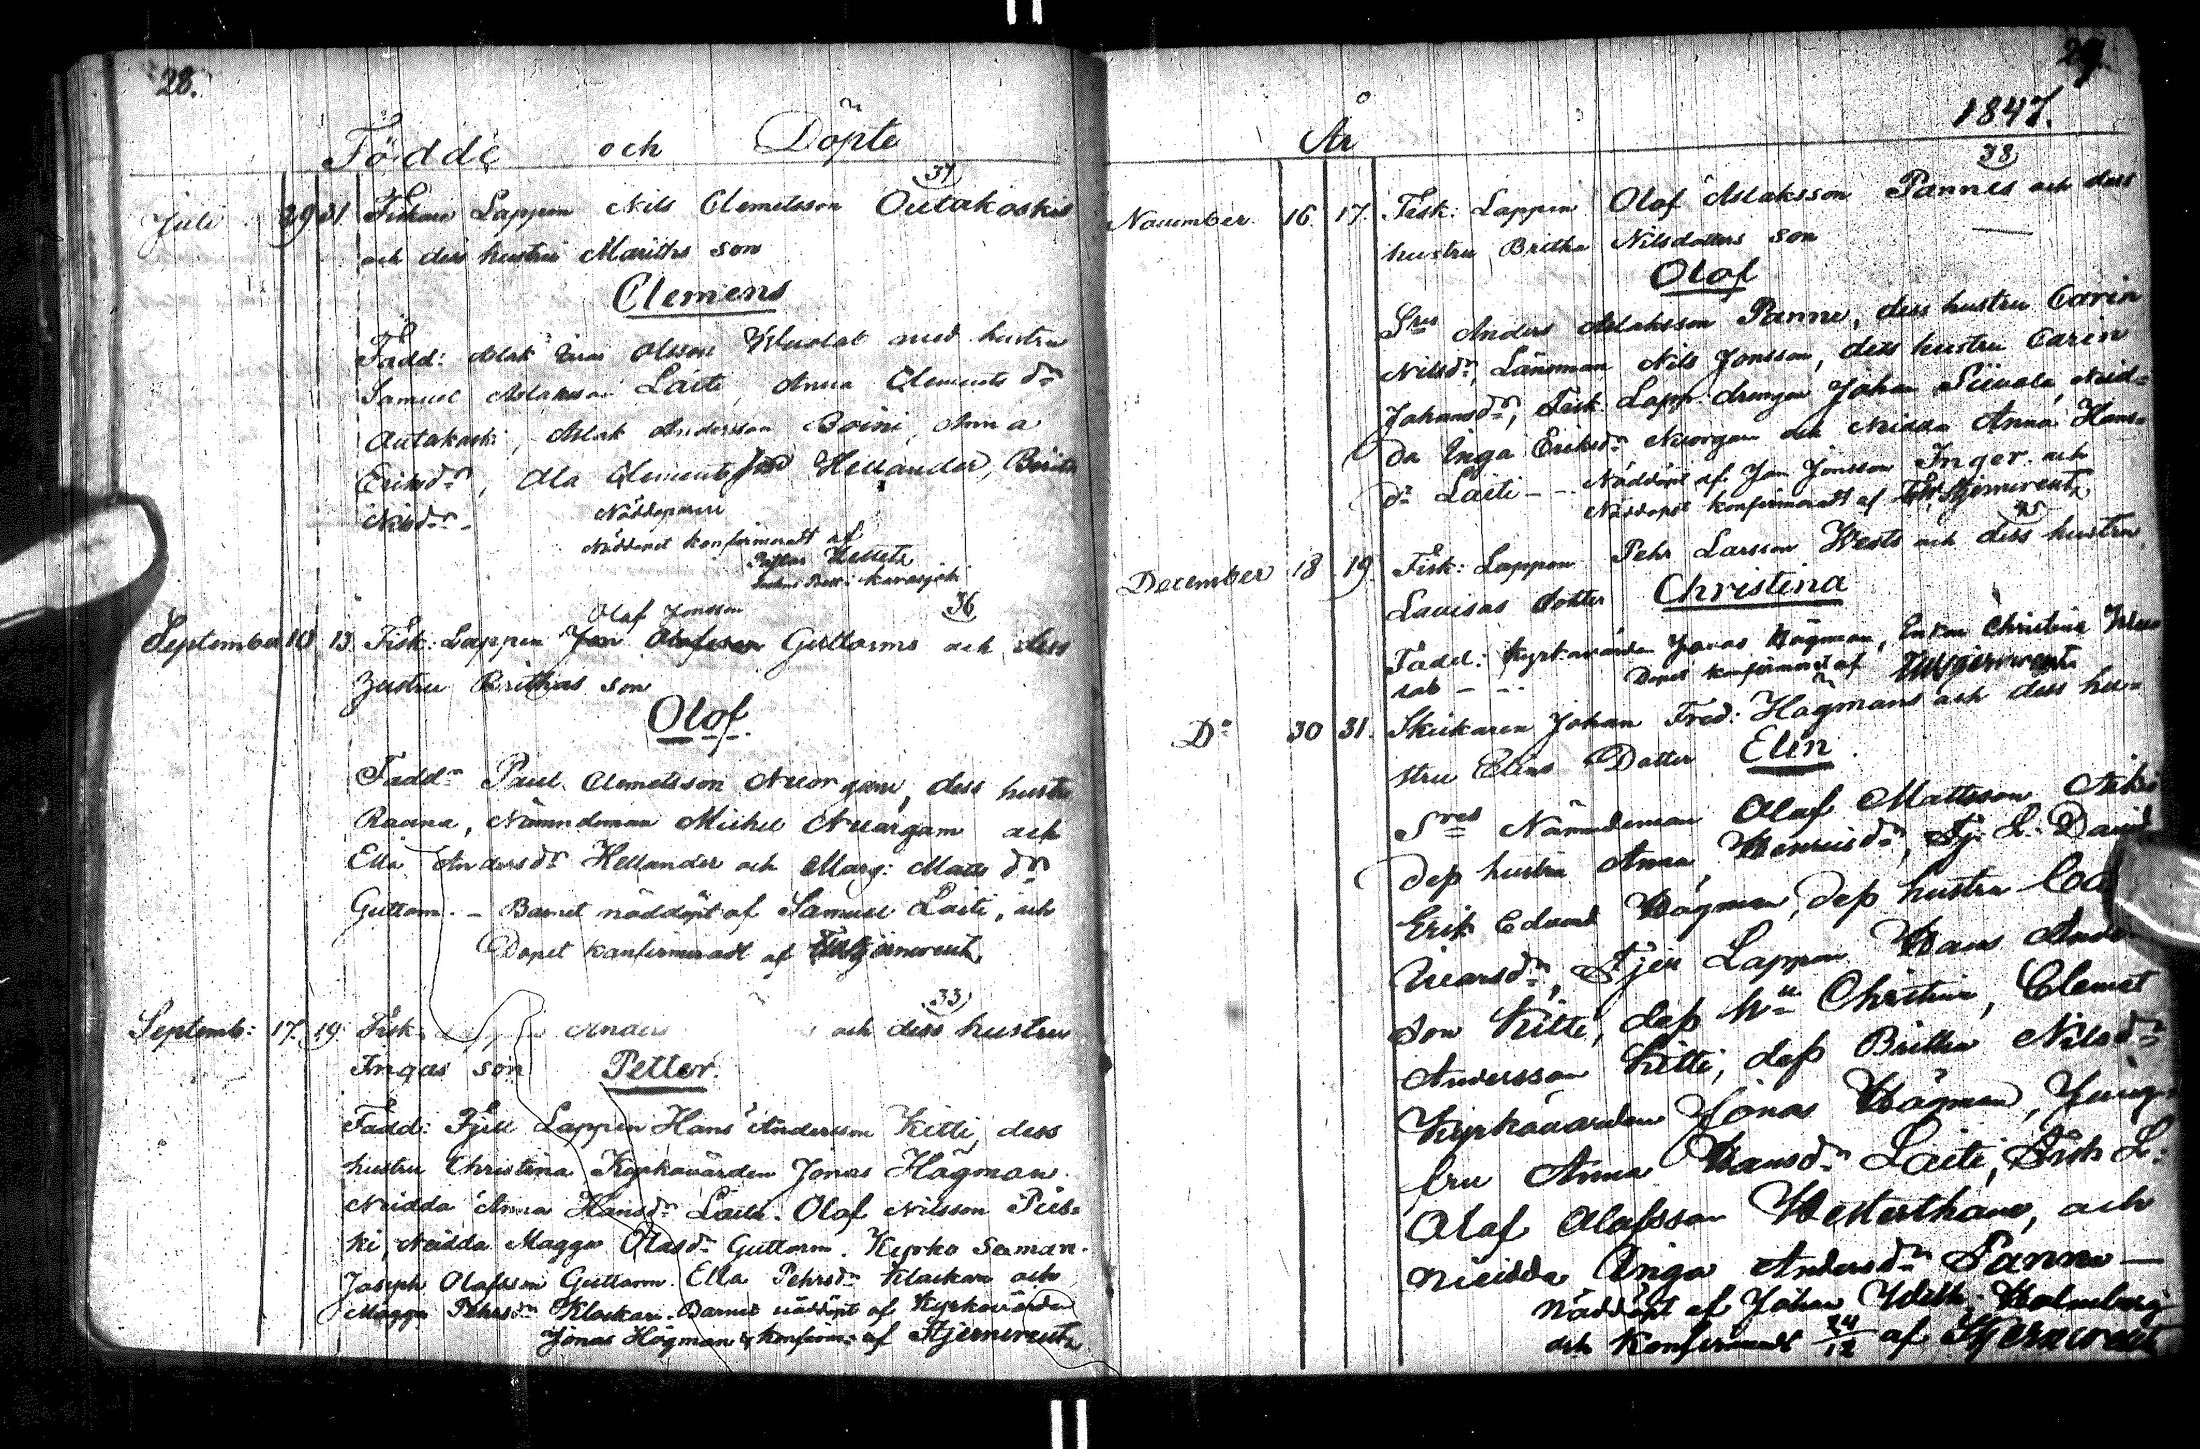 28.
Födde och Döpte
37
Juli 29 31. Fiskare Lappen Nils Clemetsson Outakoskis
och dess hustru Mariths son
Clemens
Fadd: Aslak Olsson med hustru
Samuel Aslaksson Laiti, Anna Clements dr
Outakoski, Aslak Andersson Boini, Anna
Eriksdr, Ola Clements Hellander, Brita
Nilsdr.
Nöddöparen
Nöddopet konfirmeradt af
Pastor
Karasjoki
36
Olof Jonsson
September 10 13 Fisk: Lappen Jon Olofsson Guttorms och dess
hustru Brithas son
Olof.
Faddr Paul Clemetsson Nuorgam, dess hustru
Raana, Nämndeman Michel Nuorgam och
Ella Andersdr Hellander och Marg: Matts dr
Guttorm. – Barnet nöddöpt af Samuel Laiti, och
Dopet konfirmeradt af Stjernvreutz
33
Septemb: 17. 19. Fisk. Anders och dess hustru
Ingas son Petter.
Fadd: Fjell Lappen Hans Andersson Kitti, dess
hustru Christina Kyrkovärden Jonas Högman.
Neidda Anna Hansdr Laiti. Olof Nilsson Pies-
ki, Neidda Magga Olasdr Guttorm. Kyrko
Joseph Olofsson Guttorm. Ella Pehrsdr Klockare och
Magga Pehrsdr Klockare. Barnet nöddöpt af Kyrkovärden
Jonas Högman & konfirm: af Stjernvreutz
29.
År 1847.
38
November 16 17. Fisk: Lappen Olof Aslaksson Pannes och dess
hustru Britha Nilsdotters son
Olof
Sres Anders Aslaksson Panne, dess hustru Carin
Nilsdr, Länsman Nils Jonsson, dess hustru Carin
Johansdr, Fisk. Lapp drengen Johan Siivola, Neid-
da Inga Eriksdr Nuorgam och Neidda Anna Hans-
dr Laiti – – Nöddöpt af Jon Jonsson Inger och
Nöddopet konfirmeradt af Stjernvreutz
December 18 19. Fisk: Lappen Pehr Larsson Wests och dess hustru
Lauisas dotter Christina
Fadd: Kyrkovärden Jonas Högman, Enkan Christina
Dopet konfirmerat af Stjernvreutz
Do 30 31. Skickaren Johan Fred: Högmans och dess hu-
stru Elins Dotter Elin.
Sres Nämndeman Olof Mattsson
dess hustru Anna Henricsdr, Fj: L: David
Erik Eduard Högman, dess hustru
Fjell Lappen Hans Anders
son Kitti, dess hu Christina, Clemet
Andersson Kitti, dess Britha Nilsdr
Kyrkovärden Jonas Högman, Jung-
fru Anna Hansdr Laiti, Fisk L:
Olof Olofsson Westerthane, och
neidda Inga Andersdr Panne –
Nöddöpt af Johan Wilh. Holmberg
och Konfirmeradt 24/12 af Stjernvreutz